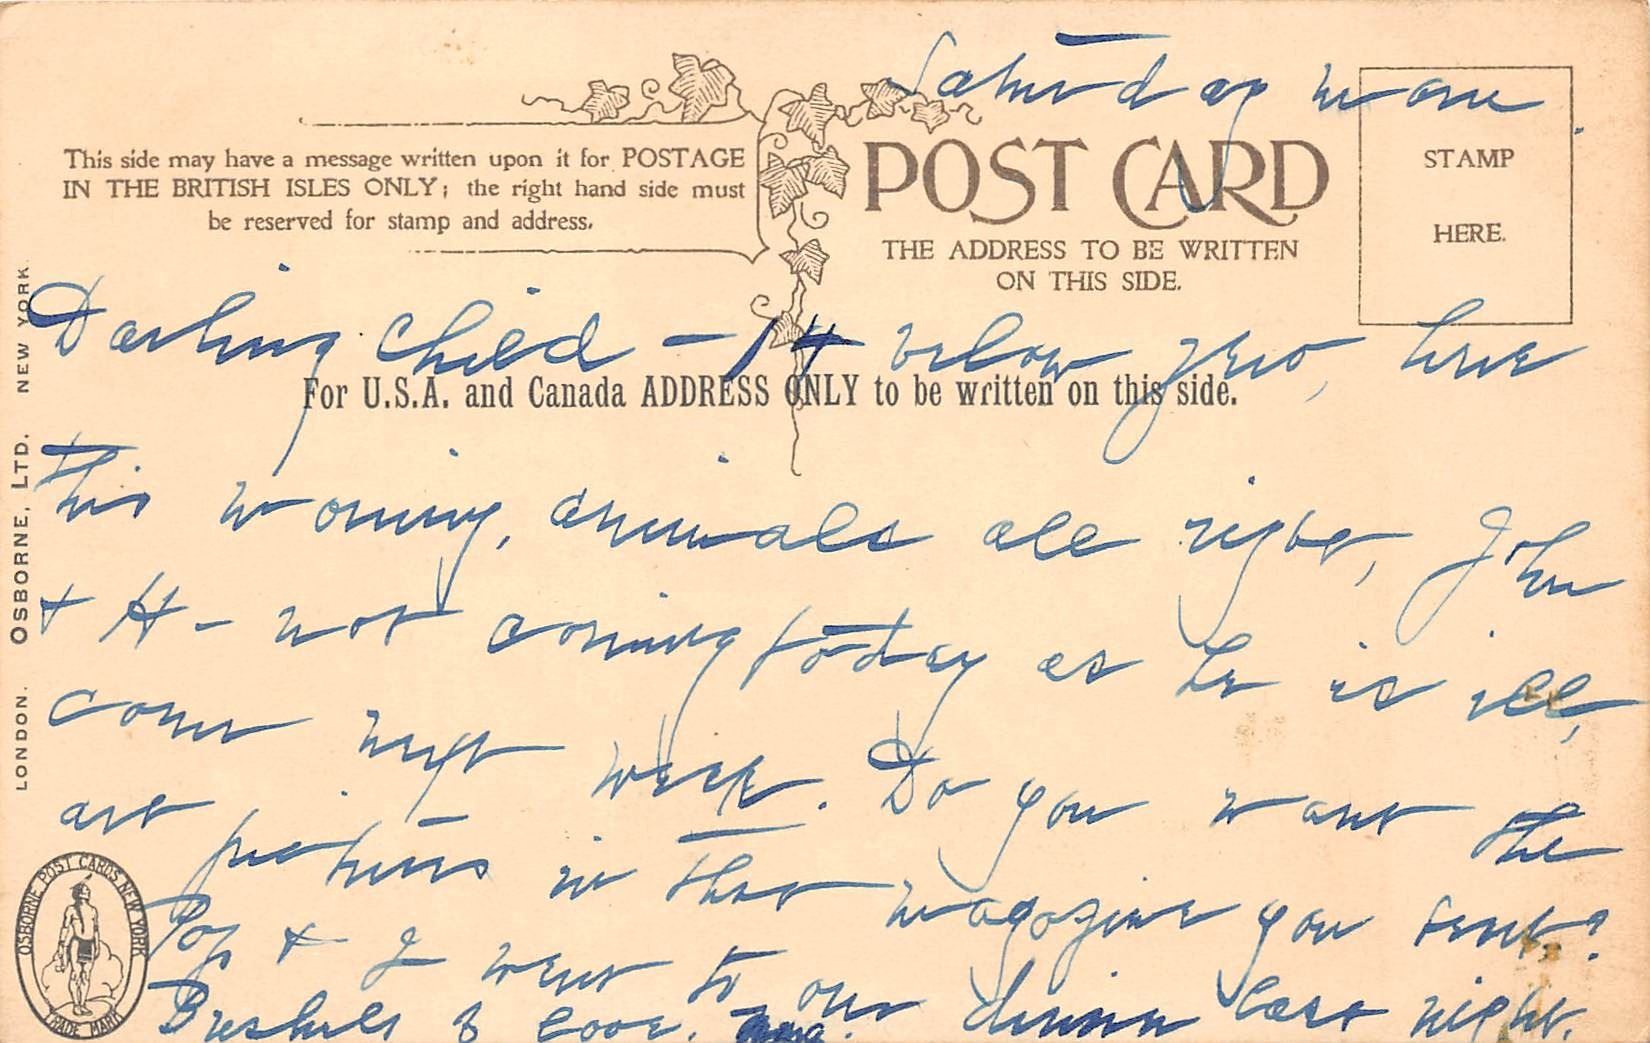 Saturday morn.
This side may have a message written upon it for POSTAGE
IN THE BRITISH ISLES ONLY; the right hand side must
be reserved for stamp and address.
POST CARD
THE ADDRESS TO BE WRITTEN
ON THIS SIDE.
STAMP
HERE.
Darling Child - 14 below zero, here
For U.S.A. and Canada ADDRESS ONLY to be written on this side.
this morning, animals all right, John
+ H - not coming today as he is ill,
come next week. Do you want the
art pictures in that magazine you sent?
Pop + I went to our dinner last night.
Bushels of love.
LONDON. OSBORNE, LTD. NEW YORK.
OSBORNE POST CARDS NEW YORK
TRADE MARK